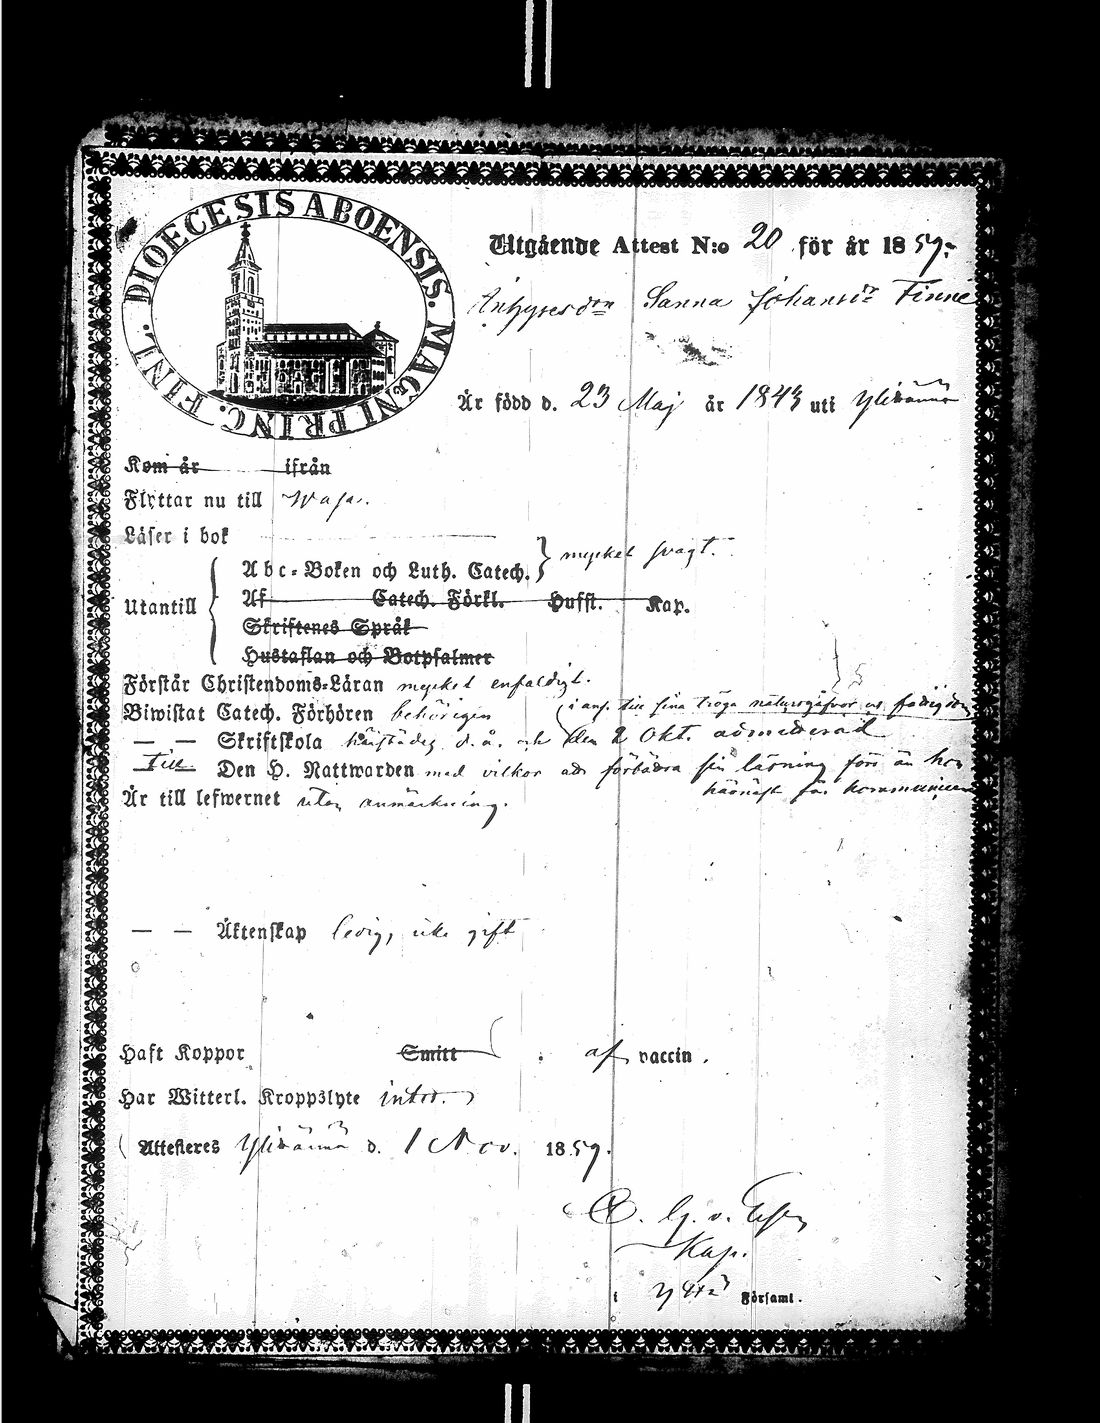 DIOECESIS ABOENSIS. MAGNI PRINC. FINL.
Utgående Attest N:o 20 för år 1859.
Sanna Johansdr Finne
Är född d. 23 Maj år 1843 uti Ylihärmä
Kom år ifrån
Flyttar nu till Wasa.
Läser i bok
Abc-Boken och Luth. Catech. } mycket svagt.
Utantill
Af Catech. Förkl. Husft. Kap.
Skriftenes Språk
Hustaflan och Botpsalmer
Förstår Christendoms-Läran mycket enfaldigt.
Biwistat Catech. Förhören behörigen (i ans. till sina tröga naturgåfvor
— — Skriftskola härstädes d. å. och den 2 Okt. admitterad
till Den H. Nattwarden med vilkor att förbättra sin läsning förr än hon
härnäst får kommunicera
Är till lefwernet utan anmärkning.
— — Äktenskap ledig, icke gift
Haft Koppor Smitt af vaccin.
Har Witterl. Kroppslyte intet.
Attesteras Ylihärmä d. 1 Nov. 1859.
Kap.
i Församl.